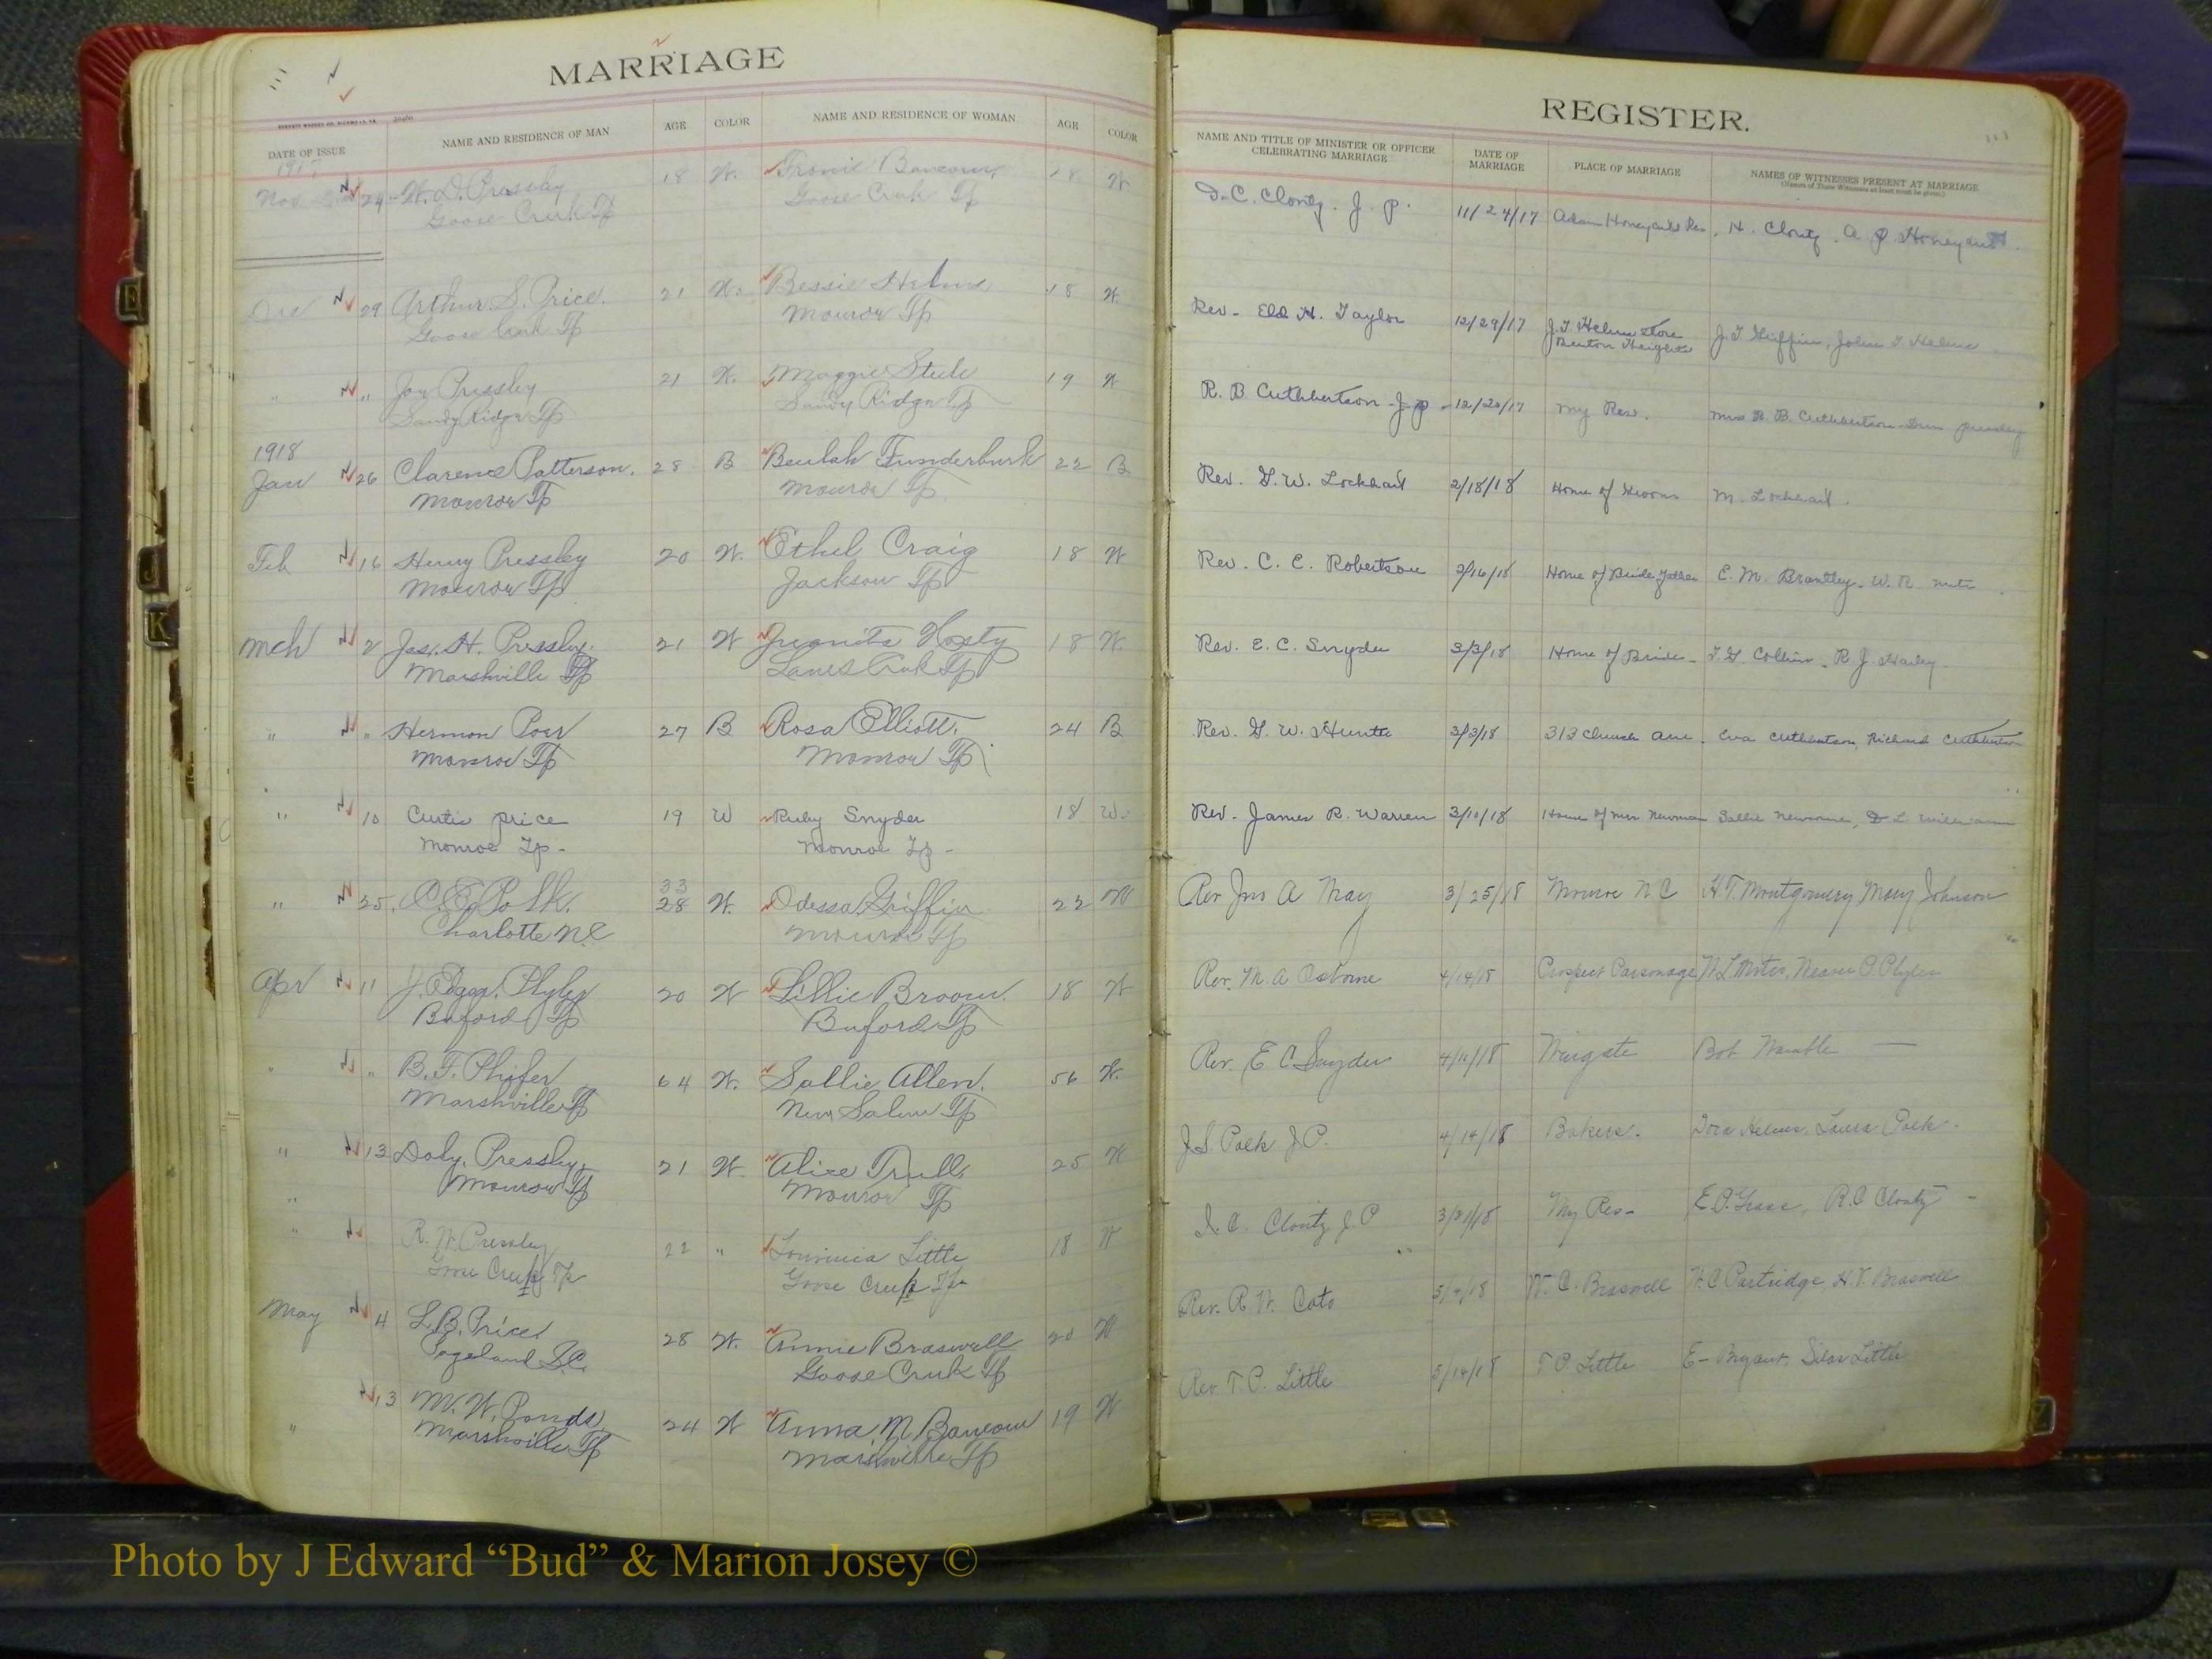 MARRIAGE
DATE OF ISSUE NAME AND RESIDENCE OF MAN AGE COLOR NAME AND RESIDENCE OF WOMAN AGE COLOR
Nov 24 W. D. Pressley 18 W. Baucom 18 W
Goose Creek Tp Goose Creek Tp
Dec 29 Arthur S. Price. 21 W. Bessie Helms 18 W.
Goose Creek Tp Monroe Tp
" " Pressley 21 W. Maggie Steele 19 W
Sandy Ridge Tp Sandy Ridge Tp
1918
Jan 26 Clarence Patterson. 28 B Beulah Funderburk 22 B
Monroe Tp Monroe Tp
Feb 16 Henry Pressley 20 W. Ethel Craig 18 W
Monroe Tp Jackson Tp
Mch 2 Jas. H. Pressley. 21 W Juanita 18 W.
Marshville Tp Lanes Creek Tp
" " Hermon Poer 27 B Rosa Elliott. 24 B
Monroe Tp Monroe Tp
" 10 Curtis price 19 W Ruby Snyder 18 W.
Monroe Tp- Monroe Tp-
33
" 25. Polk. 28 W. Odessa Griffin 22 W
Charlotte N.C Monroe Tp
Apr 11 J. Edgar Plyler 20 W Lillie Broom. 18 W
Buford Tp Buford Tp
" " B. F. Phifer 64 W. Sallie Allen. 56 W.
Marshville Tp New Salem Tp
" 13 Doly. Pressley, 21 W. Alice Trull. 25 W
Monroe Tp Monroe Tp
" R. W. Pressley 22 " Little 18 W
Goose Creek Tp Goose Creek Tp
May 4 L. B. Price 28 W. Annie Braswell 20 W
Pageland S.C. Goose Creek Tp
" 13 M. W. Ponds, 24 W Anna. M Baucom 19 W
Marshville Tp Marshville Tp
REGISTER.
NAME AND TITLE OF MINISTER OR OFFICER CELEBRATING MARRIAGE DATE OF MARRIAGE PLACE OF MARRIAGE NAMES OF WITNESSES PRESENT AT MARRIAGE
(Names of Three Witnesses at least must be given.)
D. C. Clontz. J. P. 11/24/17 Adam Honeycutt Res. H. Clontz. A P. Honeycutt.
Rev- Eld H. Taylor 12/29/17 J. T. Helms Store J. T. Griffin, John T. Helms
Benton Heights
R. B Cuthbertson - J-p - 12/20/17 my Res. Mrs R. B. Cuthbertson
Rev. G. W. Lockhart 2/18/18 Home of Groom M. Lockhart.
Rev. C. C. Robertson 2/16/18 Home of Bride father E. M. Brantley - W. R.
Rev. E. C. Snyder 3/3/18 Home of Bride - Collins - R. J.
Rev. G. W. Hunter 3/3/18 313 Church ave. Eva Cuthbertson, Richard Cuthbertson
Rev- James R. Warren 3/10/18 Home of Mrs Newman Sallie
Rev Jno A May 3/25/18 Monroe N C H T. Montgomery Mary Johnson
Rev. M. A Osborne 4/14/18 Prospect Parsonage Plyler
Rev. E C Snyder 4/11/18 Wingate Bob Womble —
J. S. Polk J. P. 4/14/18 Bakers. Dora Helms. Laura Polk -
Clontz J P 3/31/18 My Res- E. P. R. C Clontz -
Rev. R. W. Cato 5/4/18 W. C. Braswell W. C Partridge, H. V. Braswell
Rev. T. P. Little 5/14/18 T P. Little E - Bryant, Silas Little
E
J
K
Photo by J Edward “Bud” & Marion Josey ©